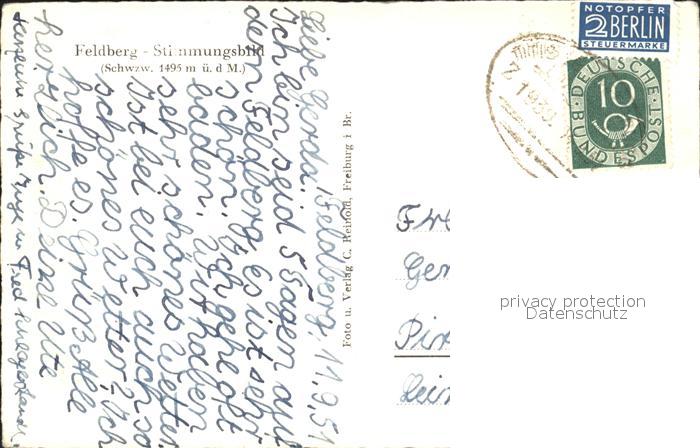 Feldberg - Stimmungsbild
(Schwzw. 1495 m ü. d M.)
Feldberg, 11.9.51
Liebe Gerda!
Ich bin seid 5 Tagen auf
dem Feldberg. Es ist sehr
schön. Ich gehe oft
baden. Wir haben
sehr schönes Wetter.
Ist bei euch auch so
schönes Wetter? Ich
hoffe es. Grüß Alle
herzlich. Deine Ute
Herzliche Grüße Inge u. Fred
Foto u. Verlag C. Reinold, Freiburg i Br.
NOTOPFER
2 BERLIN
STEUERMARKE
DEUTSCHE
BUNDESPOST
10
Z
Ger
privacy protection
Datenschutz